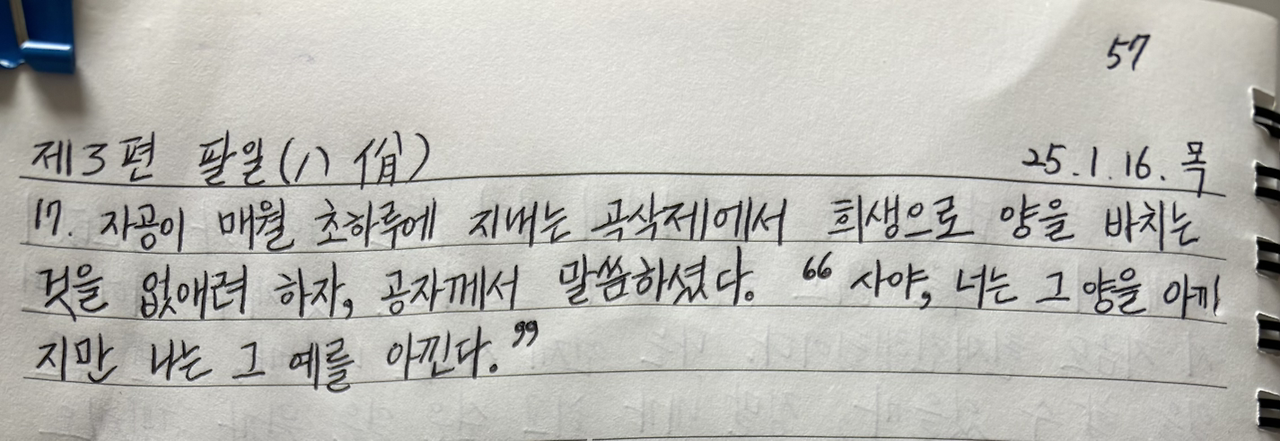 57
제3편 팔일(八佾) 25.1.16.목
17. 자공이 매월 초하루에 지내는 곡삭제에서 희생으로 양을 바치는
것을 없애려 하자, 공자께서 말씀하셨다. “사야, 너는 그 양을 아끼
지만 나는 그 예를 아낀다.”